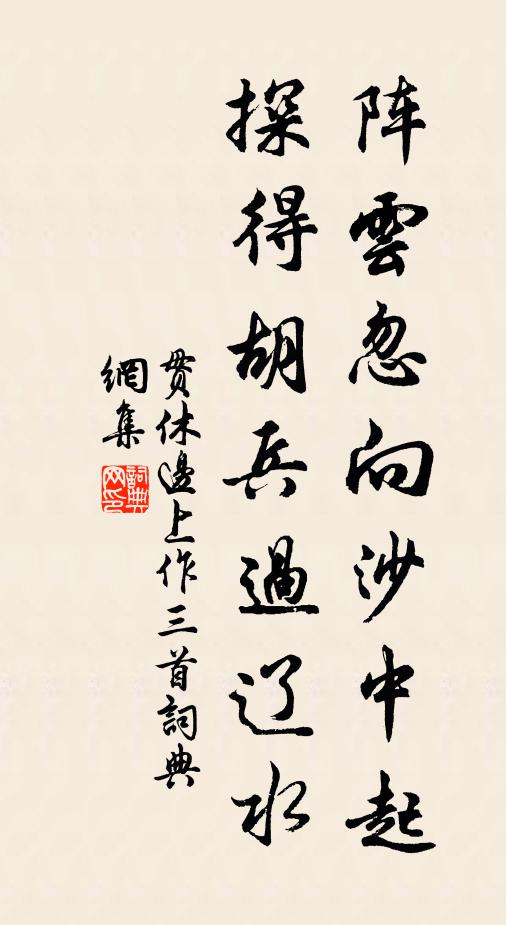 阵雲忽向沙中起
探得胡兵過辽水
贯休邊上作三首詞典
網集
詞典
网印